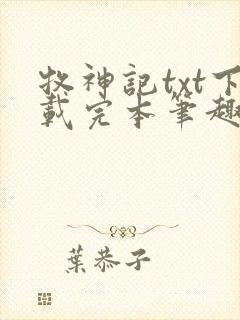 牧神記txt下
載完本筆趣
葉恭子